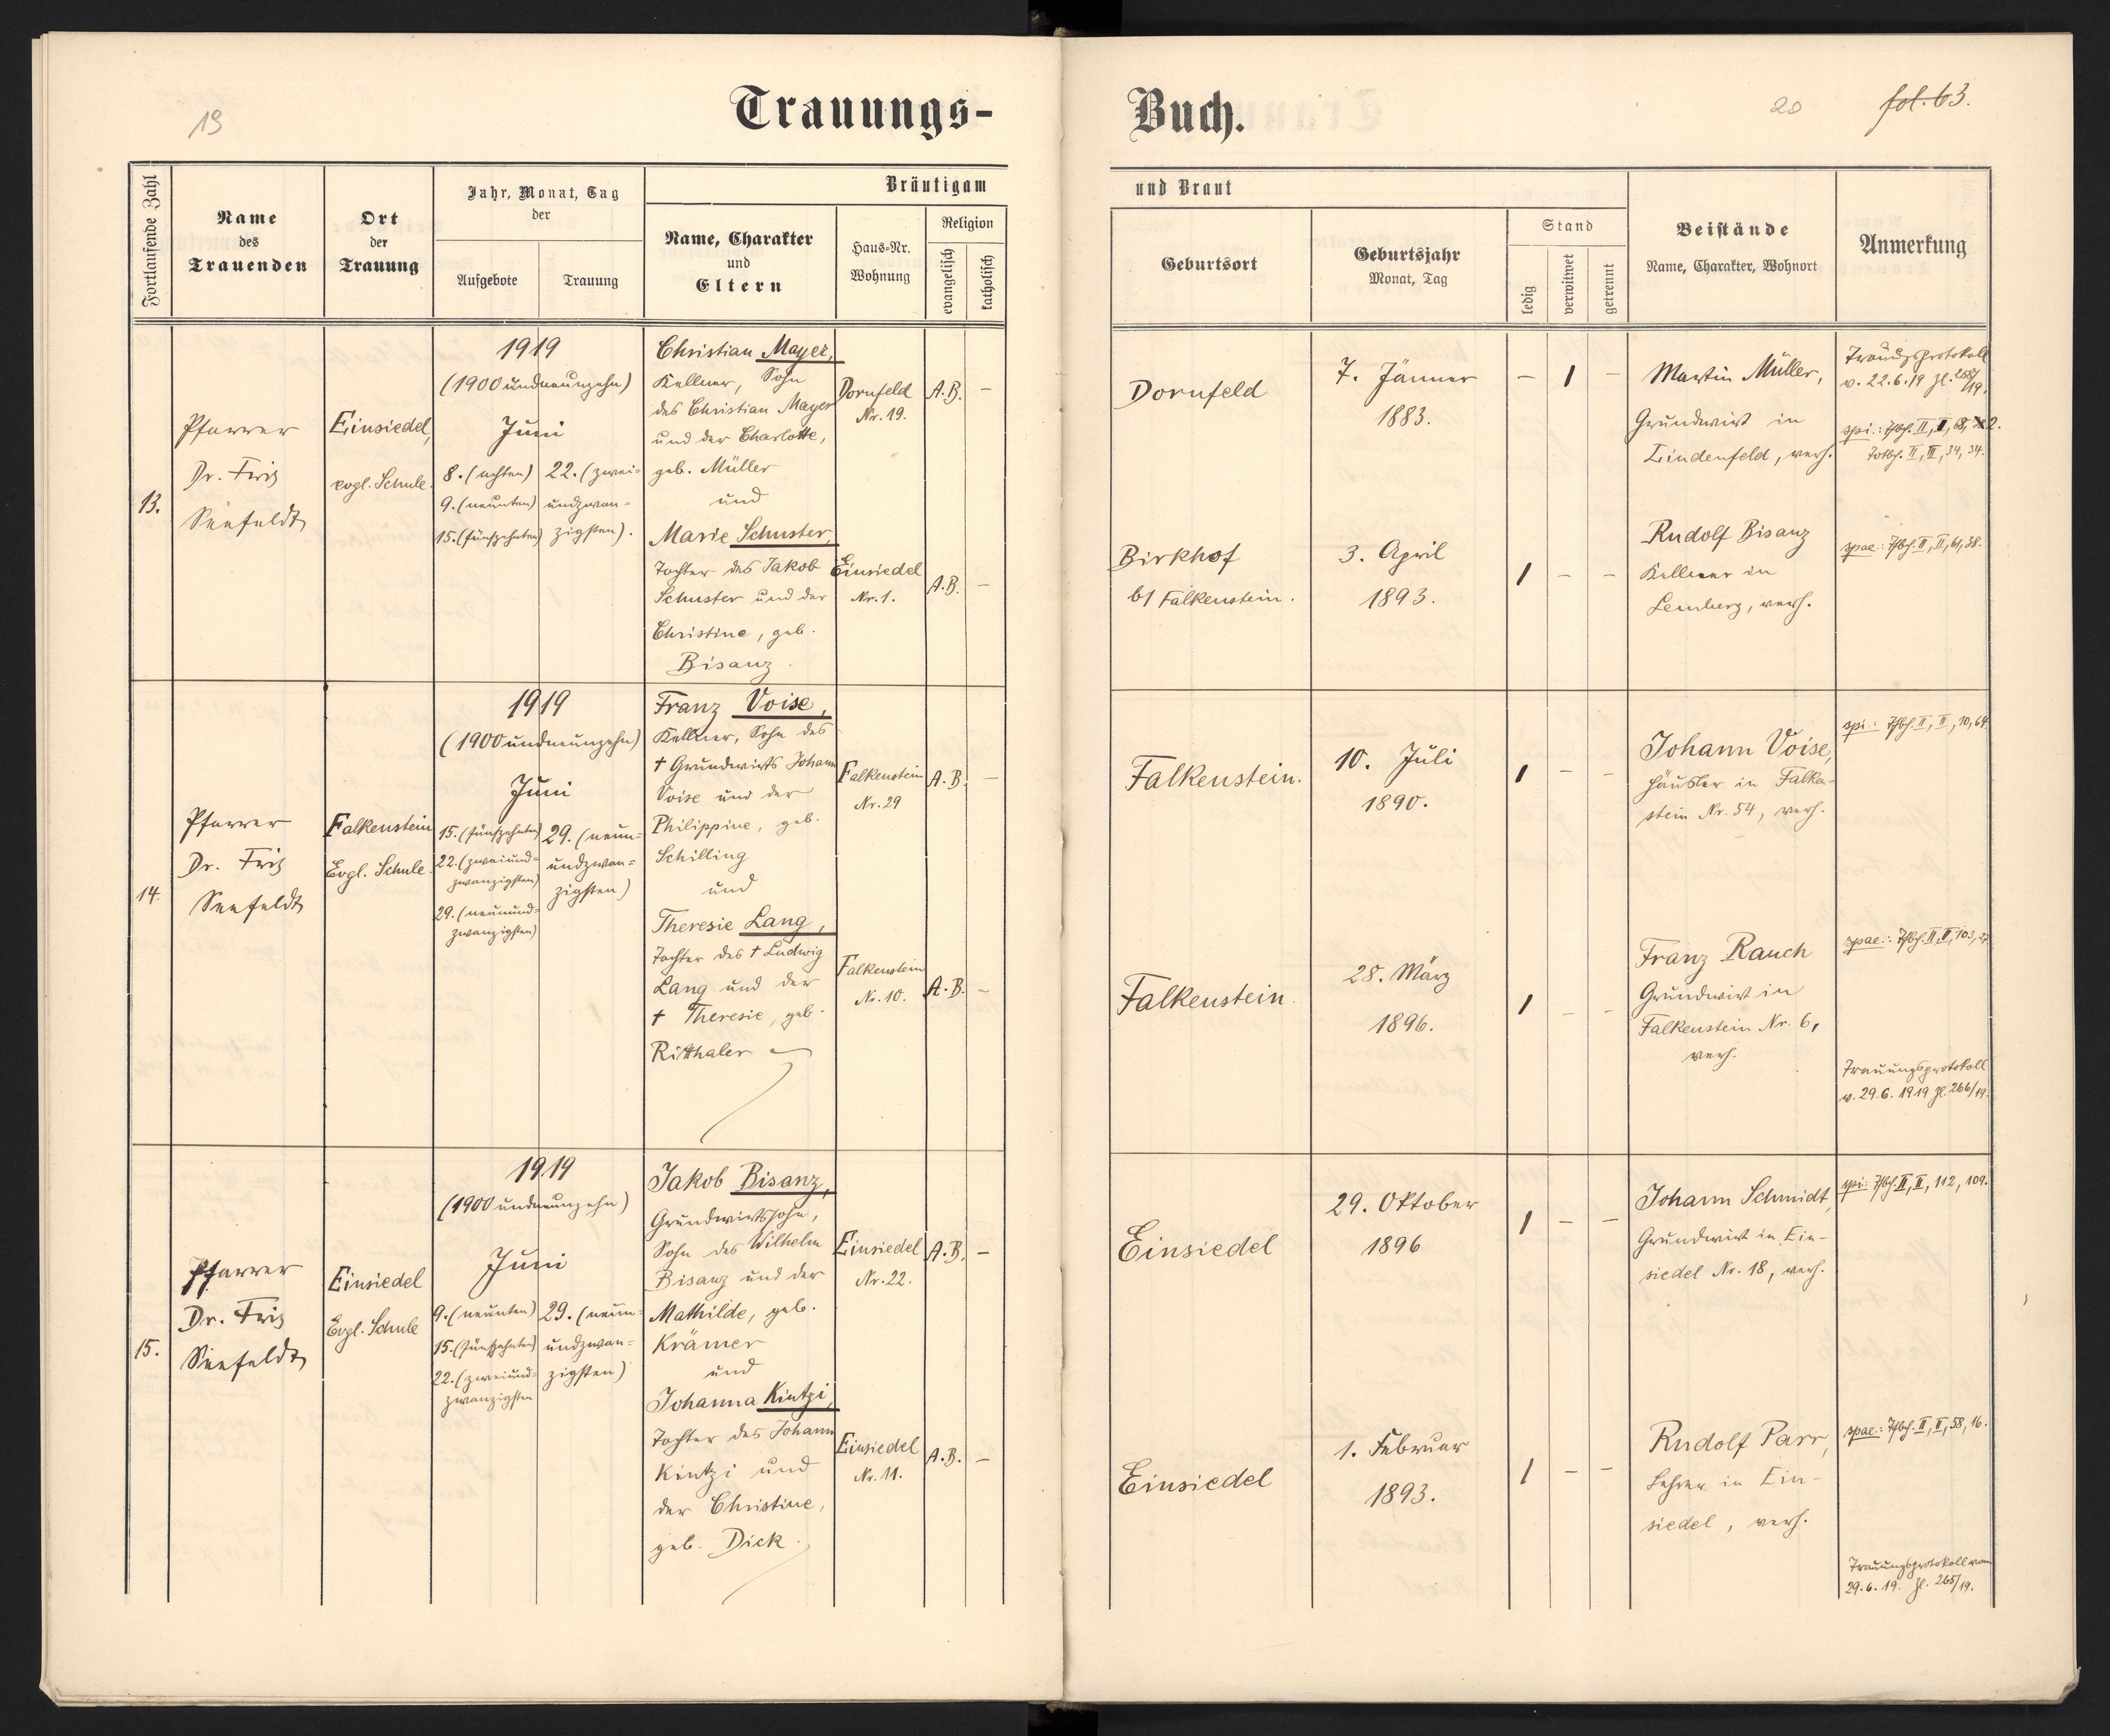 19
Trauungs-
Fortlaufende Zahl
Name
des
Trauenden
Ort
der
Trauung
Jahr, Monat, Tag
der
Aufgebote
Trauung
Bräutigam
Name, Charakter
und
Eltern
Haus-Nr.
Wohnung
Religion
evangelisch
katholisch
13.
Pfarrer
Dr. Fritz
Seefeldt
Einsiedel,
evgl. Schule.
1919
(1900 undneunzehn)
Juni
8. (achten)
9. (neunten)
15. (fünfzehnten)
22. (zwei=
undzwan=
zigsten).
Christian Mayer,
Kellner, Sohn
des Christian Mayer
und der Charlotte,
geb. Müller
und
Marie Schuster,
Tochter des Jakob
Schuster und der
Christine, geb.
Bisanz.
Dornfeld
Nr. 19.
A.B. –
Einsiedel
Nr. 1.
A.B. –
14.
Pfarrer
Dr. Fritz
Seefeldt
Falkenstein
Evgl. Schule.
1919
(1900 undneunzehn)
Juni
15. (fünfzehnten)
22. (zweiund=
zwanzigsten)
29. (neunund=
zwanzigsten)
29. (neun=
undzwan=
zigsten)
Franz Voise,
Kellner, Sohn des
† Grundwirts Johann
Voise und der
Philippine, geb.
Schilling
und
Theresie Lang,
Tochter des † Ludwig
Lang und der
† Theresie, geb.
Ritthaler
Falkenstein
Nr. 29
A.B. –
Falkenstein
Nr. 10.
A.B. –
15.
Pfarrer
Dr. Fritz
Seefeldt
Einsiedel
Evgl. Schule
1919
(1900 undneunzehn)
Juni
9. (neunten)
15. (fünfzehnten)
22. (zweiund=
zwanzigsten
29. (neun=
undzwan=
zigsten)
Jakob Bisanz,
Grundwirtssohn,
Sohn des Wilhelm
Bisanz und der
Mathilde, geb.
Krämer
und
Johanna Kintzi,
Tochter des Johann
Kintzi und
der Christine,
geb. Dick.
Einsiedel
Nr. 22.
A.B. –
Einsiedel
Nr. 11.
A.B. –
Buch.
20
fol. 63.
und Braut
Geburtsort
Geburtsjahr
Monat, Tag
Stand
ledig
verwitwet
getrennt
Beistände
Name, Charakter, Wohnort
Anmerkung
Dornfeld
7. Jänner
1883.
– 1 –
Martin Müller,
Grundwirt in
Lindenfeld, verh.
Trauungsprotokoll
v. 22.6.19 Zl.
spi.: Tfbch. II, II, 68,
Totbch. II, II, 34, 34.
Birkhof
bei Falkenstein.
3. April
1893.
1 – –
Rudolf Bisanz
Kellner in
Lemberg, verh.
spae.: Tfbch. II, II, 61, 38.
Falkenstein.
10. Juli
1890.
1 – –
Johann Voise,
Häusler in Falken-
stein Nr. 54, verh.
spi.: Tfbch. II, II, 10, 64.
Falkenstein.
28. März
1896.
1 – –
Franz Rauch
Grundwirt in
Falkenstein Nr. 6,
verh.
spae.: Tfbch. II, II, 103, 27
Trauungsprotokoll
v. 29.6.1919 Zl. 266/19.
Einsiedel
29. Oktober
1896
1 – –
Johann Schmidt,
Grundwirt in Ein-
siedel Nr. 18, verh.
spi: Tfbch. II, II, 112, 109.
Einsiedel
1. Februar
1893.
1 – –
Rudolf Parr,
Lehrer in Ein-
siedel, verh.
spae.: Tfbch. II, II, 58, 16.
Trauungsprotokoll vom
29.6.19. Zl. 265/19.